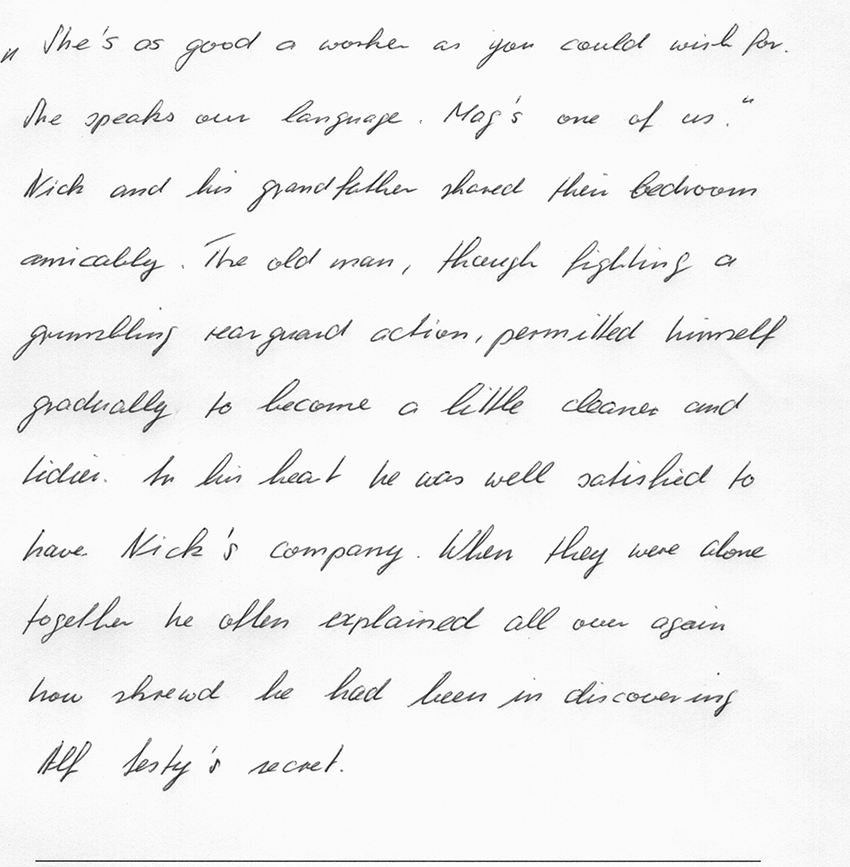 "She's as good a worker as you could wish for.
She speaks our language. Mag's one of us."
Nick and his grandfather shared their bedroom
amicably. The old man, though fighting a
grumbling rearguard action, permitted himself
gradually to become a little cleaner and
tidier. In his heart he was well satisfied to
have Nick's company. When they were alone
together he often explained all over again
how shrewd he had been in discovering
Alf Testy's secret.